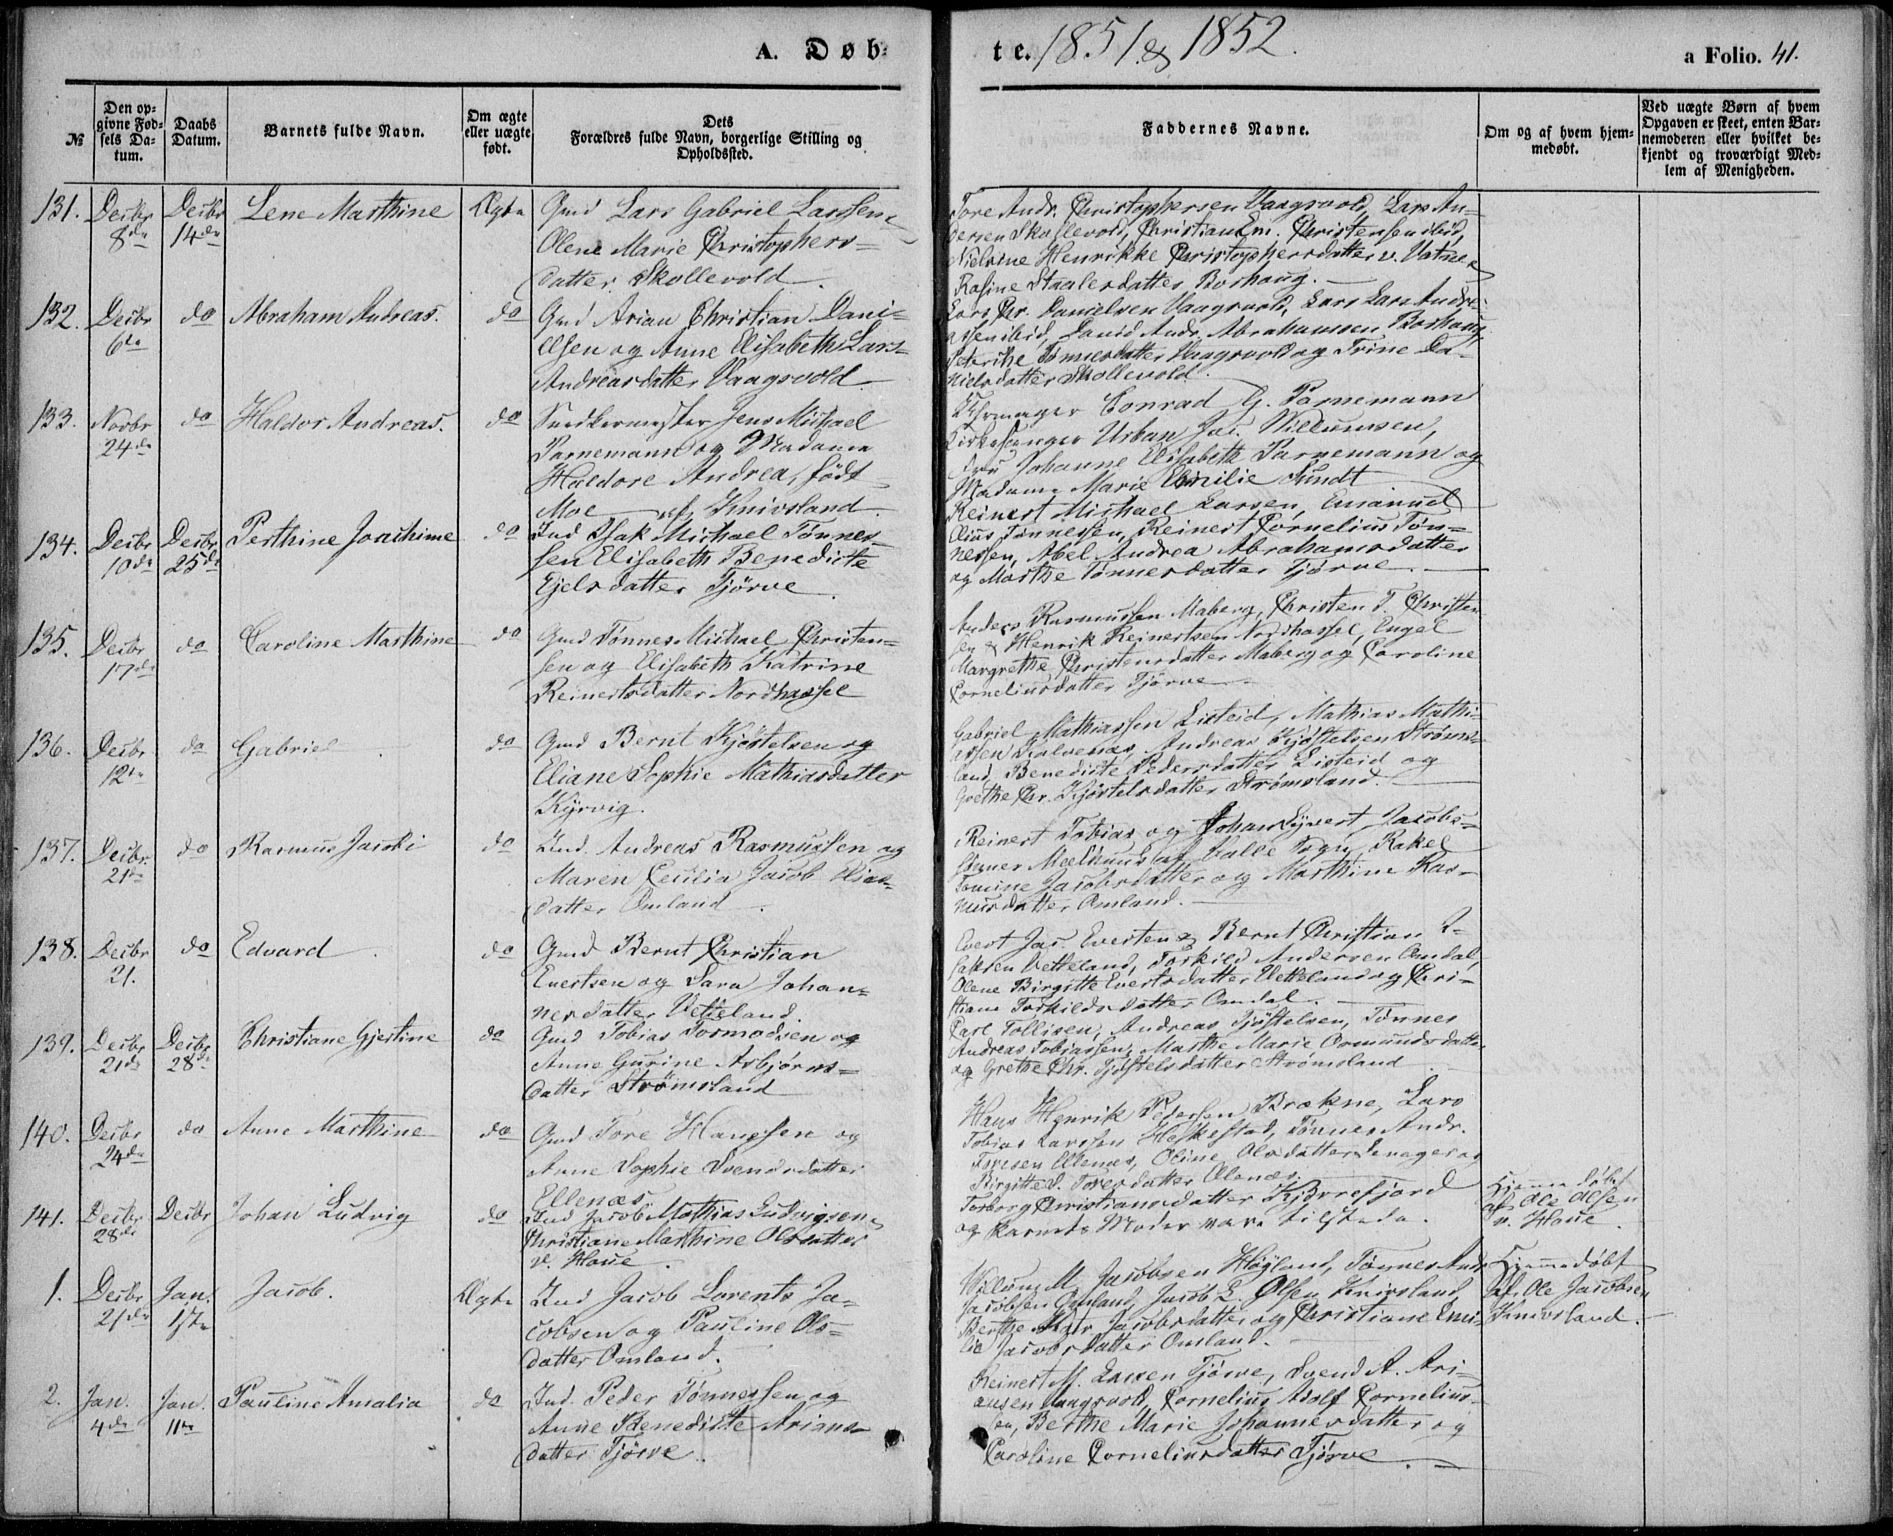 A. Døb-
te. 1851 & 1852.
a Folio. 41.
№
Den op-
givne Fød-
sels Da-
tum.
Daabs
Datum.
Barnets fulde Navn.
Om ægte
eller uægte
født.
Dets
Forældres fulde Navn, borgerlige Stilling og
Opholdssted.
Faddernes Navne.
Om og af hvem hjem-
medøbt.
Ved uægte Børn af hvem
Opgaven er skeet, enten Bar-
nemoderen eller hvilket be-
kjendt og troværdigt Med-
lem af Menigheden.
131. Decbr 8de Decbr 14de Lene Marthine Ægte Gmd Lars Gabriel Larssen &
Olene Marie Christophers-
datter Skollevold.
Tore Andr. Christophersen Vaagsvold, Lars An-
dersen Skollevold, Christian Em. Christensen ibid,
Nielsine Henrikke Christophersdatter v. Vatne &
Rasine Staalesdatter Borhaug.
132. Decbr 6te do Abraham Andreas. do Gmd Arian Christian Dani-
elsen og Anne Elisabeth Lars-
Andreasdatter Vaagsvold
Lars Chr. Danielsen Vaagsvold, Lars Lars Andre-
assen ibid, David Andr. Abrahamsen Borhaug,
Petrike Tønnesdatter Vaagsvold og Trine Da-
nielsdatter Skollevold.
133. Novbr 24de do Haldor Andreas. do Snedkermester Jens Michael
Parnemann og Madame
Haldore Andrea, født
Moe af Knivsland.
Conrad G. Parnemann
Kirkesanger Urban Jac. Willumsen,
Johanne Elisabeth Parnemann og
Madame Marie Emilie Sundt
134. Decbr 10de Decbr 25de Perthine Joachime do Ind Isak Michael Tønnes-
sen Elisabeth Benedicte
Ejelsdatter Tjørve.
Reinert Michael Larsen, Emanuel
Elius Tønnessen, Reinert Cornelius Tøn-
nessen, Abel Andrea Abrahamsdatter
og Marthe Tønnesdatter Tjørve.
135. Decbr 17de do Caroline Marthine do Gmd Tønnes Michael Christen-
sen og Elisabeth Katrine
Reinertsdatter Nordhassel
Anders Rasmussen Maberg, Christen T. Christen-
sen & Henrik Reinertsen Nordhassel, Engel
Margrethe Christensdatter Maberg og Caroline
Corneliusdatter Tjørve.
136. Decbr 12te do Gabriel do Gmd Bernt Kjøstelsen og
Eliane Sophie Mathiasdatter
Kyrvig.
Gabriel Mathiassen Listeid, Mathias Mathi-
assen Kalvenæs, Andreas Kjøstelsen Strøms-
land, Benedicte Pedersdatter Listeid og
Grethe Chr. Kjøstelsdatter Strømsland.
137. Decbr. 21de do Rasmus Jacobi do Ind. Andreas Rasmussen og
Maren Cecilia Jacob Elias-
datter Omland.
Reinert Tobias og Johan Sivert Jacobs-
sønner Mælhuus af Valle Sogn, Rakel
Tomine Jacobsdatter og Marthine Ras-
musdatter Omland.
138. Decbr 21. do Edvard. do Gmd Bernt Christian
Evertsen og Sara Johan-
nesdatter Vetteland.
Evert Jac. Evertsen & Bernt Christian I-
saksen Vetteland, Torkild Andersen Omdal,
Olene Birgitte Evertsdatter Vetteland og Chri-
stiane Torkildsdatter Omdal.
139. Decbr 21de Decbr 28de Christiane Gjertine do Gmd Tobias Tormodsen og
Anne Gurine Asbjørns-
datter Strømsland
Carl Tollisen, Andreas Tjøstelsen, Tønnes
Andreas Tobiassen, Marthe Marie Osmundsdatter
og Grethe Chr. Tjøstelsdatter Strømsland
140. Decbr 24de do Anne Marthine do Gmd Tore Hanssen og
Anne Sophie Svendsdatter
Ellenæs
Hans Henrik Pedersen Brækne, Lars
Tobias Larssen Heskestad, Tønnes Andr.
Toresen Ellenæs, Oline Olsdatter og
Birgitte S. Toresdatter Elenæs.
141. Decbr 28de Decbr Johan Ludvig do Ind Jacob Mathias Ludvigsen &
Christiane Marthine Olsdatter
v. Haue.
Torborg Christiansdatter Kjørrefjord
og Barnets Moder vare tilstede.
Hjemmedøbt
af Ole Olsen
v. Haue.
1. Decbr 21de Jan. 1ste Jacob. Ægte Ind Jacob Lorents Ja-
cobsen og Pauline Ols-
datter Omland.
Willum M. Jacobsen Høyland, Tønnes Andr.
Jacobsen Omland, Jacob L. Olsen Knivsland,
Berthe Mgtr Jacobsdatter og Christiane Emi-
lie Jacobsdatter Omland.
Hjemmedøbt
af Ole Jacobsen
Knivsland.
2. Jan. 4de Jan. 11te Pauline Amalia do Ind. Peder Tønnessen og
Anne Benedicte Arians-
datter Tjørve.
Reinert M. Larsen Tjørve, Svend A. Ari-
ansen Vaagsvold, Cornelius Adolf Cornelius-
sen, Berthe Marie Johannesdatter og
Caroline Corneliusdatter Tjørve.